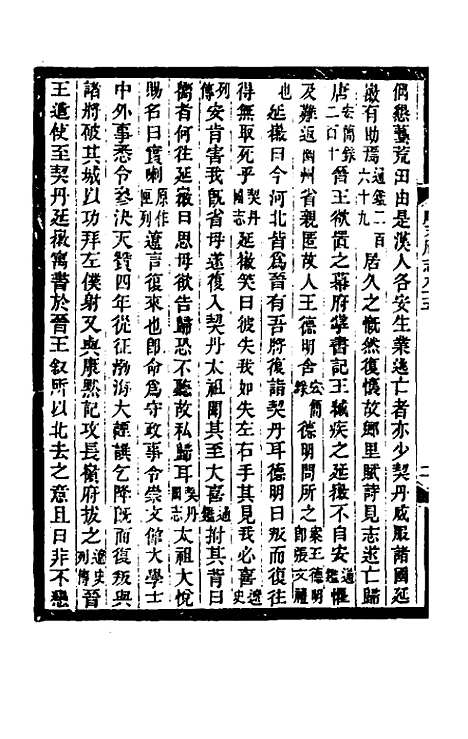 偶懇藝荒田由是漢人各安生業逃亡者亦少契丹威服諸國延
徽有助焉通鑑二百六十九居久之慨然復懷故鄉里賦詩見志遂亡歸
唐宏簡錄二百十晉王欲置之幕府掌書記王緘疾之延徽不自安通鑑懼
及難返幽州省親匿故人王德明舍宏簡錄德明問所之案王德明即張文禮
也延徽曰今河北皆為晉有吾將復詣契丹耳德明曰叛而復往
得無取死乎契丹國志延徽笑曰彼失我如失左右手其見我必喜遼史
列傳安肯害我旣省母遂復入契丹太祖聞其至大喜通鑑拊其背曰
嚮者何往延徽曰思母欲告歸恐不聽故私歸耳契丹國志太祖大悅
賜名曰實喇原作匣列遼言復來也卽命為守政事令崇文館大學士
中外事悉令參決天贊四年從征渤海大諲譔乞降旣而復叛與
諸將破其城以功拜左僕射又與康默記攻長嶺府拔之遼史列傳晉
王遣使至契丹延徽寓書於晉王敘所以北去之意且曰非不戀